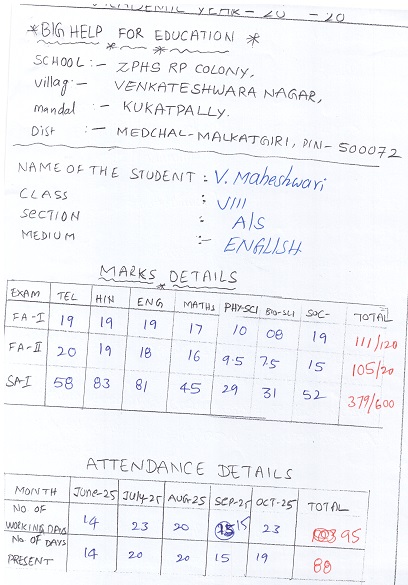 ACADEMIC YEAR - 20 - 20
*BIG HELP FOR EDUCATION *
SCHOOL :- ZPHS RP COLONY,
Villag :- VENKATESHWARA NAGAR,
mandal :- KUKATPALLY.
Dist :- MEDCHAL-MALKATGIRI, PIN- 500072
NAME OF THE STUDENT : V. Maheshwari
CLASS : VIII
SECTION : A/S
MEDIUM :- ENGLISH
MARKS DETAILS
EXAM TEL HIN ENG MATHS PHY-SCI BIO-SCI SOC- TOTAL
FA-I 19 19 19 17 10 08 19 111/120
FA-II 20 19 18 16 9.5 7.5 15 105/20
SA-I 58 83 81 45 29 31 52 379/600
ATTENDANCE DETAILS
MONTH June-25 July-25 AUG-25 SEP-25 OCT-25 TOTAL
NO. OF WORKING DAYS 14 23 20 15 23 95
NO. OF DAYS PRESENT 14 20 20 15 19 88